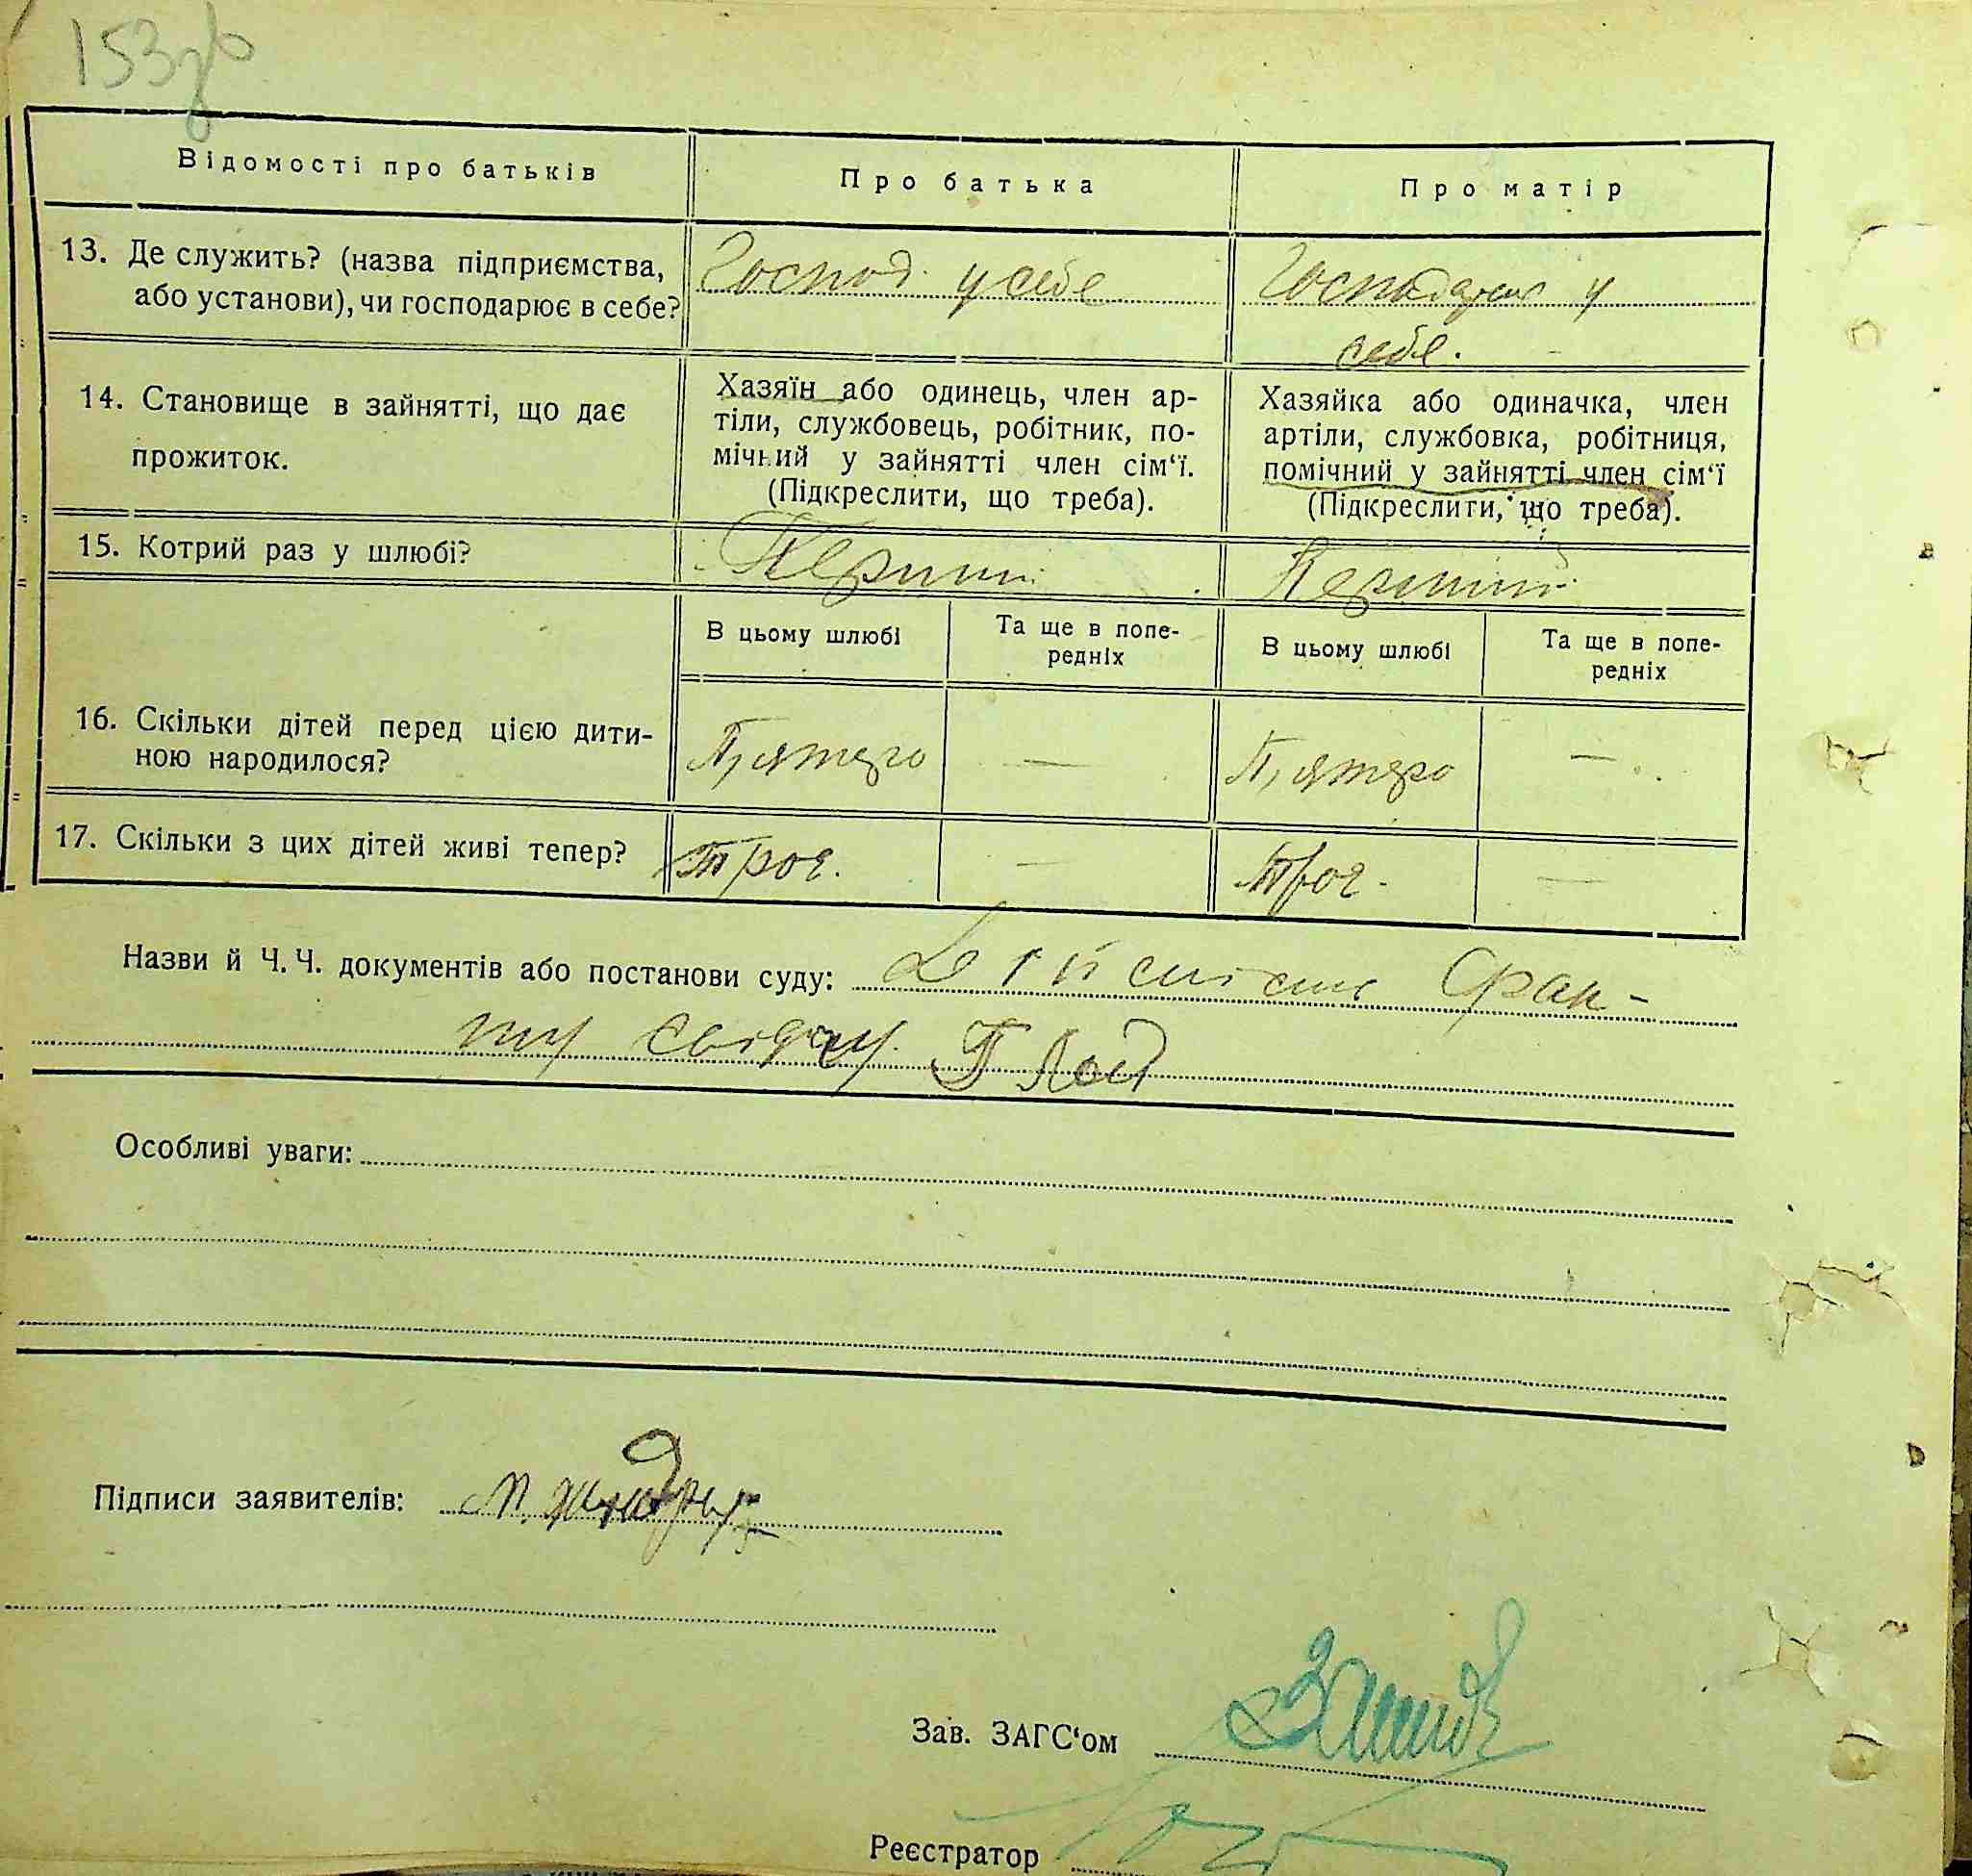 153зв
Відомості про батьків
Про батька
Про матір
13. Де служить? (назва підприємства,
або установи), чи господарює в себе?
Господ. у себе
Господарює у
себе.
14. Становище в зайнятті, що дає
прожиток.
Хазяїн або одинець, член ар-
тіли, службовець, робітник, по-
мічний у зайнятті член сім‘ї.
(Підкреслити, що треба).
Хазяйка або одиначка, член
артіли, службовка, робітниця,
помічний у зайнятті член сім‘ї
(Підкреслити, що треба).
15. Котрий раз у шлюбі?
Перший
Перший
В цьому шлюбі
Та ще в попе-
редніх
В цьому шлюбі
Та ще в попе-
редніх
16. Скільки дітей перед цією дити-
ною народилося?
П,ятеро
—
П,ятеро
—
17. Скільки з цих дітей живі тепер?
Троє.
—
Троє.
—
Назви й Ч. Ч. документів або постанови суду:
Дійсність фак-
ту свідчу
Особливі уваги:
Підписи заявителів:
Зав. ЗАГС‘ом
Реєстратор